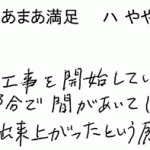 あまあ満足　ハ やや
工事を開始してい
分で間があいてし
出来上がったという